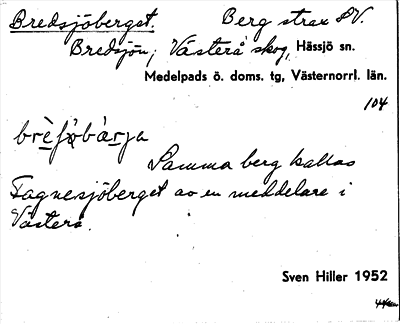 Bredsjöberget. Berg strax SV.
Bredsjön, Västerå skog, Hässjö sn.
Medelpads ö. doms. tg, Västernorrl. län.
104
Samma berg kallas
Fagnesjöberget av en meddelare i
Västerå.
Sven Hiller 1952